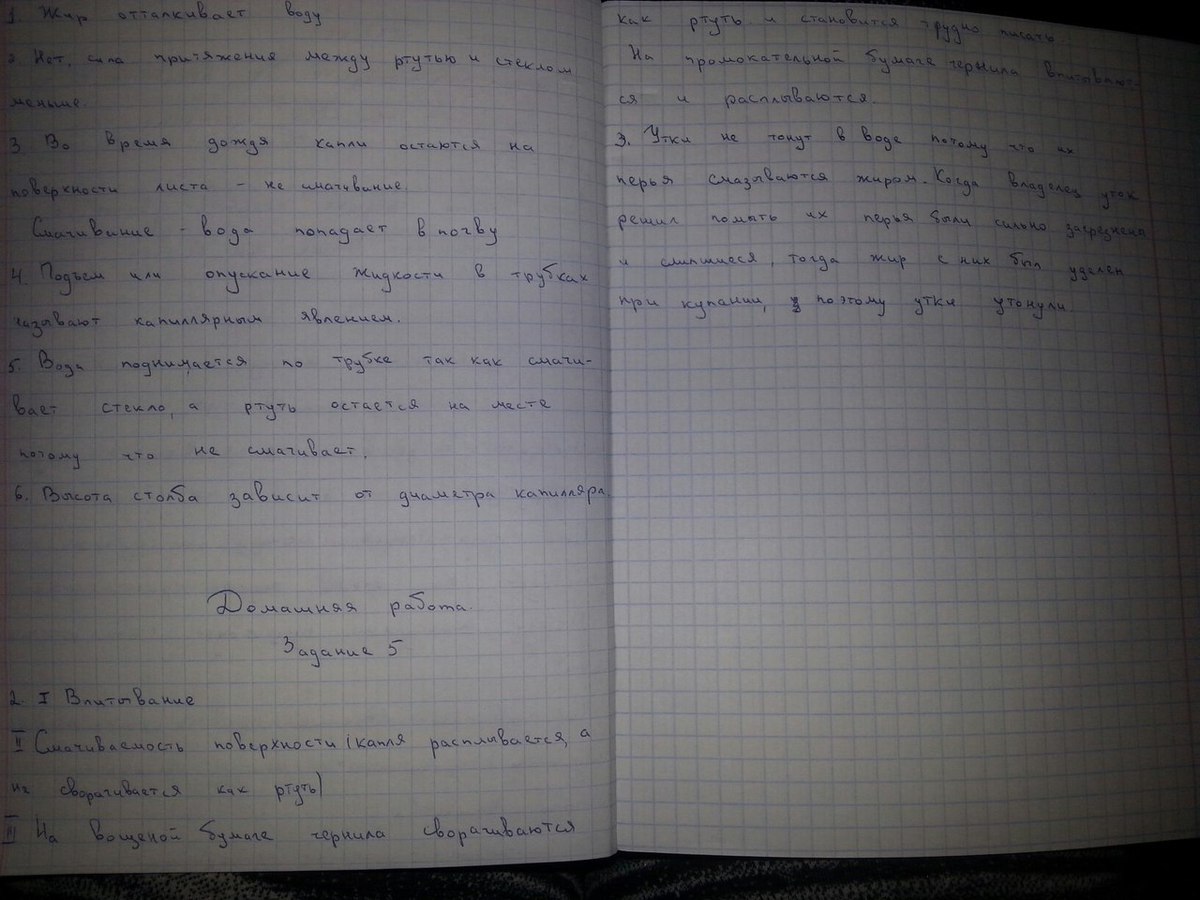 1. Жир отталкивает воду
2. Нет, сила притяжения между ртутью и стеклом
меньше.
3 Во время дождя капли остаются на
поверхности листа - не смачивание.
Смачивание - вода попадает в почву
4. Подъем или опускание жидкости в трубках
называют капиллярным явлением.
5. Вода поднимается по трубке так как смачи-
вает стекло, а ртуть остается на месте
потому что не смачивает.
6. Высота столба зависит от диаметра капилляра.
Домашняя работа.
Задание 5
2. I Впитывание
II Смачиваемость поверхности (капля расплывается, а
не сворачивается как ртуть)
III На вощеной бумаге чернила сворачиваются
как ртуть и становится трудно писать.
На промокательной бумаге чернила впитывают-
ся и расплываются.
3. Утки не тонут в воде потому что их
перья смазываются жиром. Когда владелец уток
решил помыть их перья были сильно загрезнены
и слипшиеся, тогда жир с них был удален
при купании, поэтому утки утонули